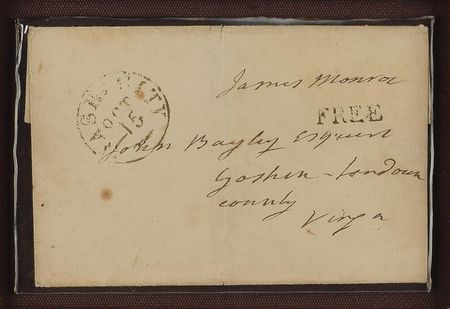 WASHN. CITY
OCT
15
James Monroe
FREE
John Bayley Esquire
Goshen - Loudoun
county
Virga